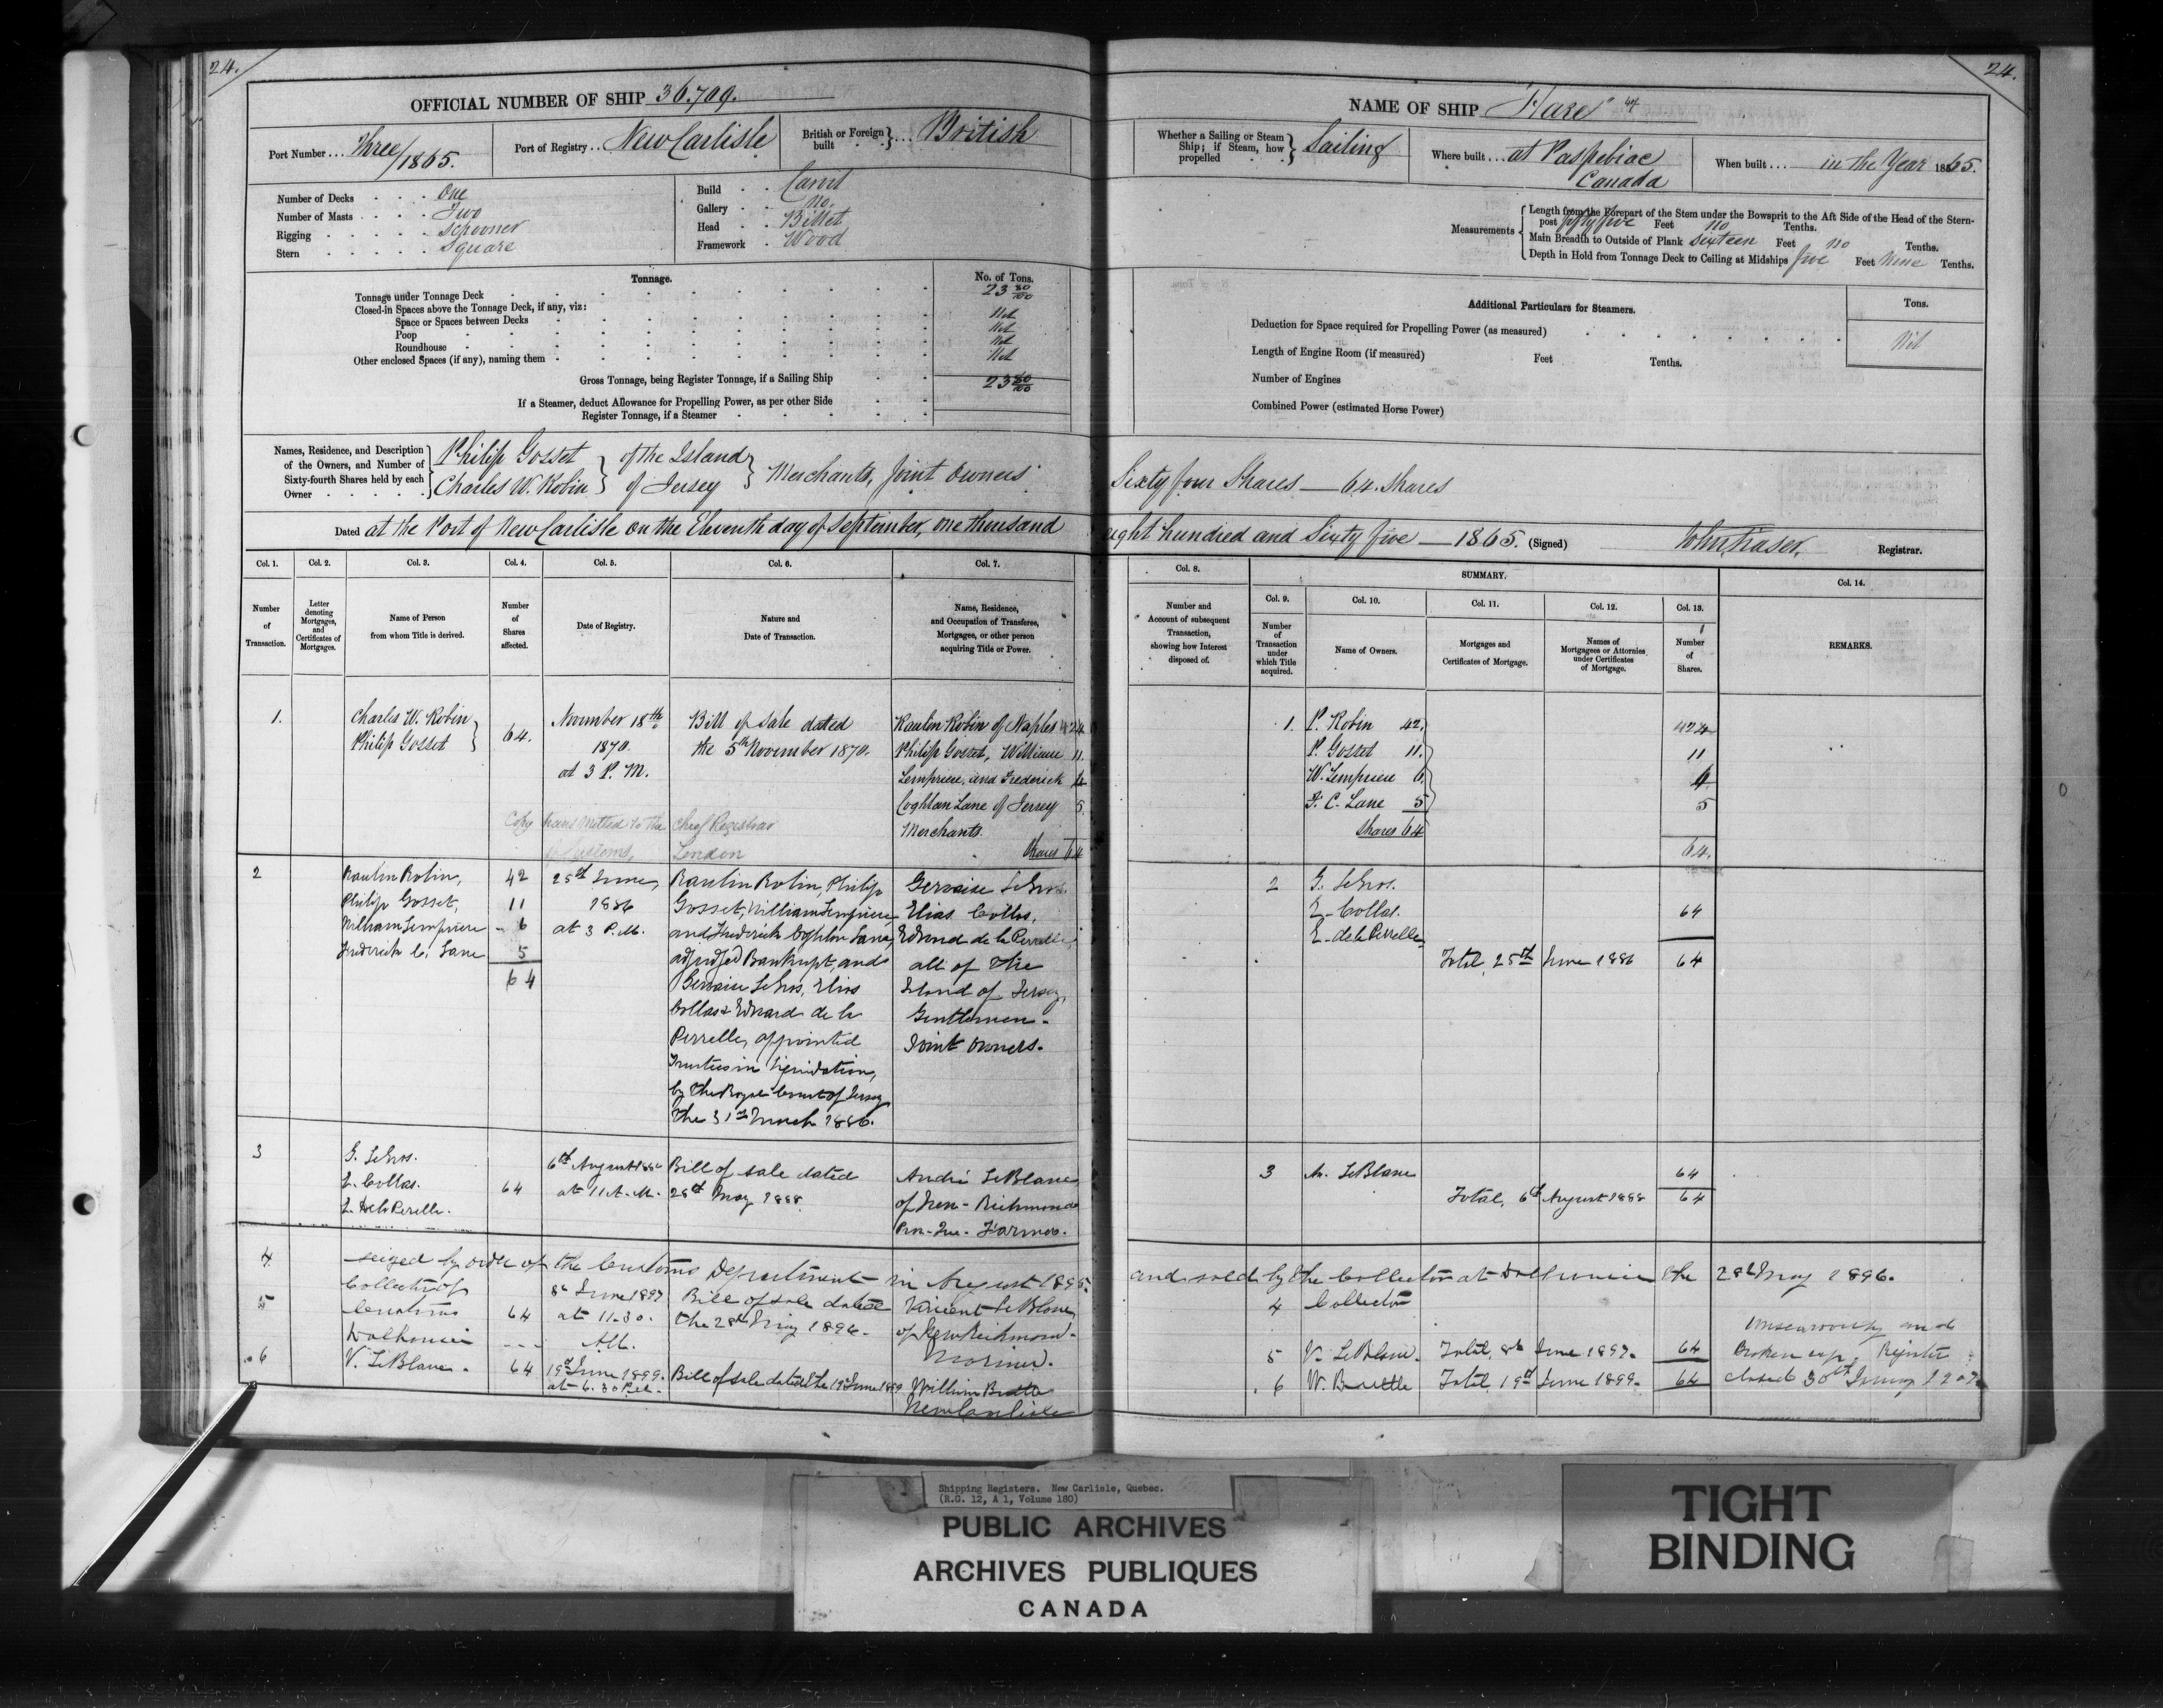 24.
OFFICIAL NUMBER OF SHIP 36.709.
Port Number ... Three/1865.
Port of Registry .. New Carlisle
British or Foreign built } ... British
Number of Decks . . . . One
Number of Masts . . . . Two
Rigging . . . . . Schooner
Stern . . . . . Square
Build . . Carvel
Gallery . . No.
Head . . Billet
Framework . Wood
Tonnage.
No. of Tons.
Tonnage under Tonnage Deck 23 80/100
Closed-in Spaces above the Tonnage Deck, if any, viz:
Space or Spaces between Decks Nil
Poop Nil
Roundhouse Nil
Other enclosed Spaces (if any), naming them Nil
Gross Tonnage, being Register Tonnage, if a Sailing Ship 23 80/100
If a Steamer, deduct Allowance for Propelling Power, as per other Side
Register Tonnage, if a Steamer
Names, Residence, and Description of the Owners, and Number of Sixty-fourth Shares held by each Owner
Philip Gosset } of the Island } Merchants, Joint Owners
Charles W. Robin } of Jersey }
Dated at the Port of New Carlisle on the Eleventh day of September, one thousand
Col. 1. Col. 2. Col. 3. Col. 4. Col. 5. Col. 6. Col. 7.
Number of Transaction.
Letter denoting Mortgages, and Certificates of Mortgages.
Name of Person from whom Title is derived.
Number of Shares affected.
Date of Registry.
Nature and Date of Transaction.
Name, Residence, and Occupation of Transferee, Mortgagee, or other person acquiring Title or Power.
1.
Charles W. Robin }
Philip Gosset }
64.
November 18th
1870.
at 3 P. M.
Bill of Sale dated
the 5th November 1870.
Raulin Robin of Naples 42
Philip Gosset, William 11.
Lempriere, and Frederick 6
Coghlan Lane of Jersey 5.
Merchants.
Shares 64
Copy transmitted to the Chief Registrar
Customs, London
2
Raulin Robin, 42
Philip Gosset, 11
William Lempriere 6
Frederick C. Lane 5
64
25th June,
1886
at 3 P.M.
Raulin Robin, Philip
Gosset, William Lempriere
and Frederick Coghlan Lane,
adjudged Bankrupt, and
Gervaise LeGros, Elias
Collas & Edward de la
Perrelle, appointed
Trustees in liquidation,
by the Royal Court of Jersey
the 31st March 1886.
Gervaise LeGros.
Elias Collas.
Edward de la Perrelle,
all of the
Island of Jersey,
Gentlemen.
Joint Owners.
3
G. LeGros.
E. Collas.
E. de la Perelle.
64
6th August 1888
at 11 A.M.
Bill of sale dated
28th May 1888.
André LeBlanc
of New-Richmond
Pro. Que. Farmer.
4
seized by order of the Customs Department in August 1895.
5
Collector of
Customs
Dalhousie
64
8th June 1897
at 11.30.
AM.
Bill of sale dated
the 28th May 1896.
Vincent LeBlanc
of New Richmond.
Mariner.
6
V. LeBlanc.
64
19th June 1899.
at 6.30 P.M.
Bill of sale dated the 19th June 1899
William
New Carlisle
24.
NAME OF SHIP "Hare"
Whether a Sailing or Steam Ship; if Steam, how propelled } Sailing
Where built ... at Paspebiac
Canada
When built .... in the Year 1865.
Measurements
Length from the Forepart of the Stem under the Bowsprit to the Aft Side of the Head of the Stern-
post fifty five Feet no Tenths.
Main Breadth to Outside of Plank Sixteen Feet no Tenths.
Depth in Hold from Tonnage Deck to Ceiling at Midships five Feet Nine Tenths.
Additional Particulars for Steamers.
Tons.
Deduction for Space required for Propelling Power (as measured) Nil
Length of Engine Room (if measured) Feet Tenths.
Number of Engines
Combined Power (estimated Horse Power)
Sixty four Shares — 64 Shares
eight hundred and Sixty five — 1865. (Signed) John Fraser, Registrar.
Col. 8.
SUMMARY.
Col. 9. Col. 10. Col. 11. Col. 12. Col. 13. Col. 14.
Number and Account of subsequent Transaction, showing how Interest disposed of.
Number of Transaction under which Title acquired.
Name of Owners.
Mortgages and Certificates of Mortgage.
Names of Mortgagees or Attornies under Certificates of Mortgage.
Number of Shares.
REMARKS.
1. P. Robin 42. 42
P. Gosset 11. 11
W. Lempriere 6. 6
F. C. Lane 5 5
Shares 64 64.
2 G. LeGros.
E. Collas. 64
E. de la Perrelle
Total, 25th June 1886 64
3 A. LeBlanc 64
Total, 6th August 1888 64
and sold by the Collector at Dalhousie the 28th May 1896.
4 Collector
5 V. LeBlanc. Total, 8th June 1897. 64
6 W. Total, 19th June 1899. 64
Unseaworthy and
broken up. Register
closed 30th
Shipping Registers. New Carlisle, Quebec.
(R.G. 12, A 1, Volume 180)
PUBLIC ARCHIVES
ARCHIVES PUBLIQUES
CANADA
TIGHT
BINDING